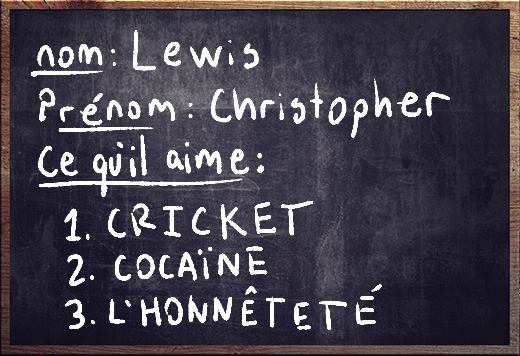 nom: Lewis
Prénom: Christopher
Ce qu'il aime:
1. CRICKET
2. COCAÏNE
3. L'HONNÊTETÉ